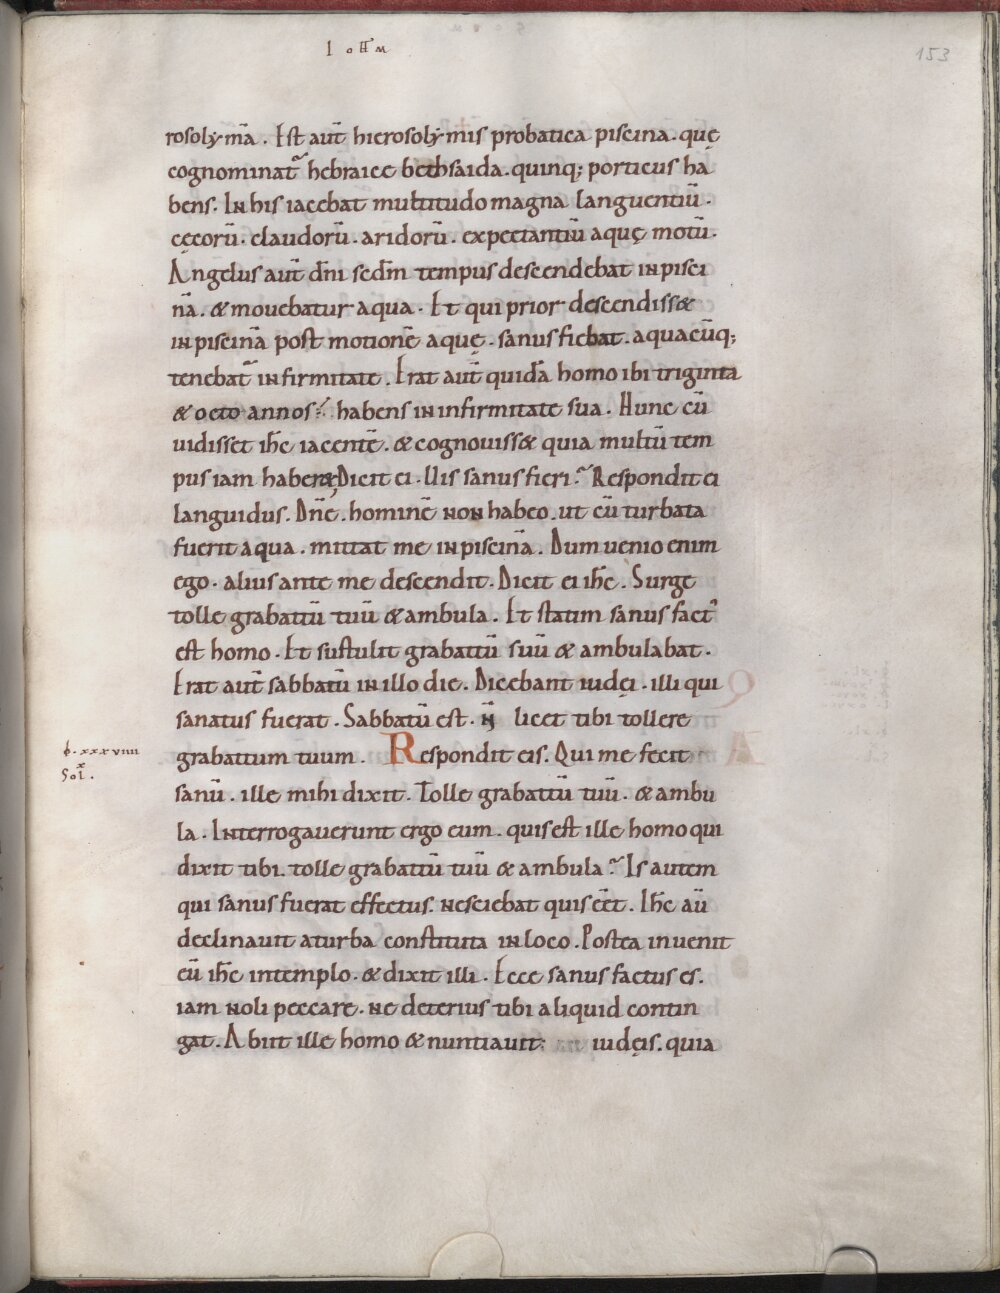 I oħм
153
rosolymā. Est aut̄ hierosolymis probatica piscina. quę
cognominat̄ hebraice bethsaida. quinq; porticus ha
bens. In his iacebat multitudo magna languentiū.
cęcorū. claudorū. aridorū. expectantiū aquę motū.
Angelus aut̄ dn̄i sedm̄ tempus descendebat in pisci
nā. & mouebatur aqua. Et qui prior descendiss&
in piscinā post motionē aquę. sanus fiebat. a quacūq;
tenebat̄ infirmitate. Erat aut̄ quidā homo ibi triginta
& octo annos habens in infirmitate sua. Hunc cū
uidisset ih̄c iacentē. & cognouiss& quia multū tem
pus iam haber& Dicit ei. Uis sanus fieri? Respondit ei
languidus. Dn̄e. hominē non habeo. ut cū turbata
fuerit aqua. mittat me in piscinā. Dum uenio enim
ego. alius ante me descendit. Dicit ei ih̄c. Surge
tolle grabattū tuū & ambula. Et statim sanus fact᾿
est homo. Et sustulit grabattū suū & ambulabat.
Erat aut̄ sabbatū in illo die. Dicebant iudęi. illi qui
sanatus fuerat. Sabbatū est. n̄ licet tibi tollere
grabattum tuum. Respondit eis. Qui me fecit
ƀ. xxxviiii
Sol. x
sanū. ille mihi dixit. Tolle grabattū tuū. & ambu
la. Interrogauerunt ergo eum. quis est ille homo qui
dixit tibi. tolle grabattū tuū & ambula? Is autem
qui sanus fuerat effectus. nesciebat quis eēt. Ih̄c aū
declinauit a turba constituta in loco. Postea inuenit
eū ih̄c in templo. & dixit illi. Ecce sanus factus es.
iam noli peccare. ne deterius tibi aliquid contin
gat. Abiit ille homo & nuntiauit iudęis. quia